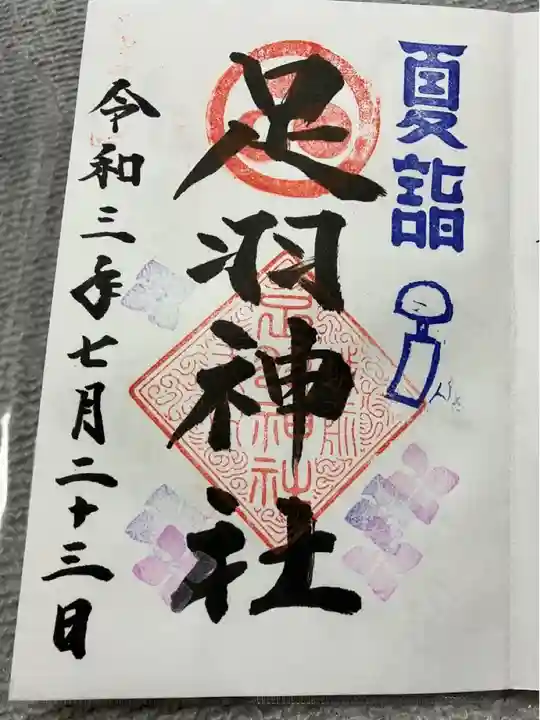 夏詣
足羽神社
足羽神社
令和三年七月二十三日